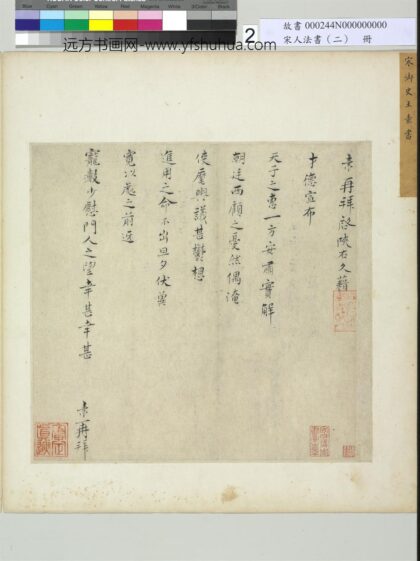 Blue Cyan Green Yellow Red Magenta White 3/Color Black
远方书画网-www.yfshuhua.com
2
故書 000244N000000000
宋人法書（二） 冊
宋御史王素書
素再拜啟陝右久藉
才德宣布
天子之惠一方安肅實解
朝廷西顧之憂然偶淹
使麾輿議甚鬱想
進用之命不出旦夕伏冀
寬以處之前迓
寵數少慰門人之望幸甚幸甚
素再拜